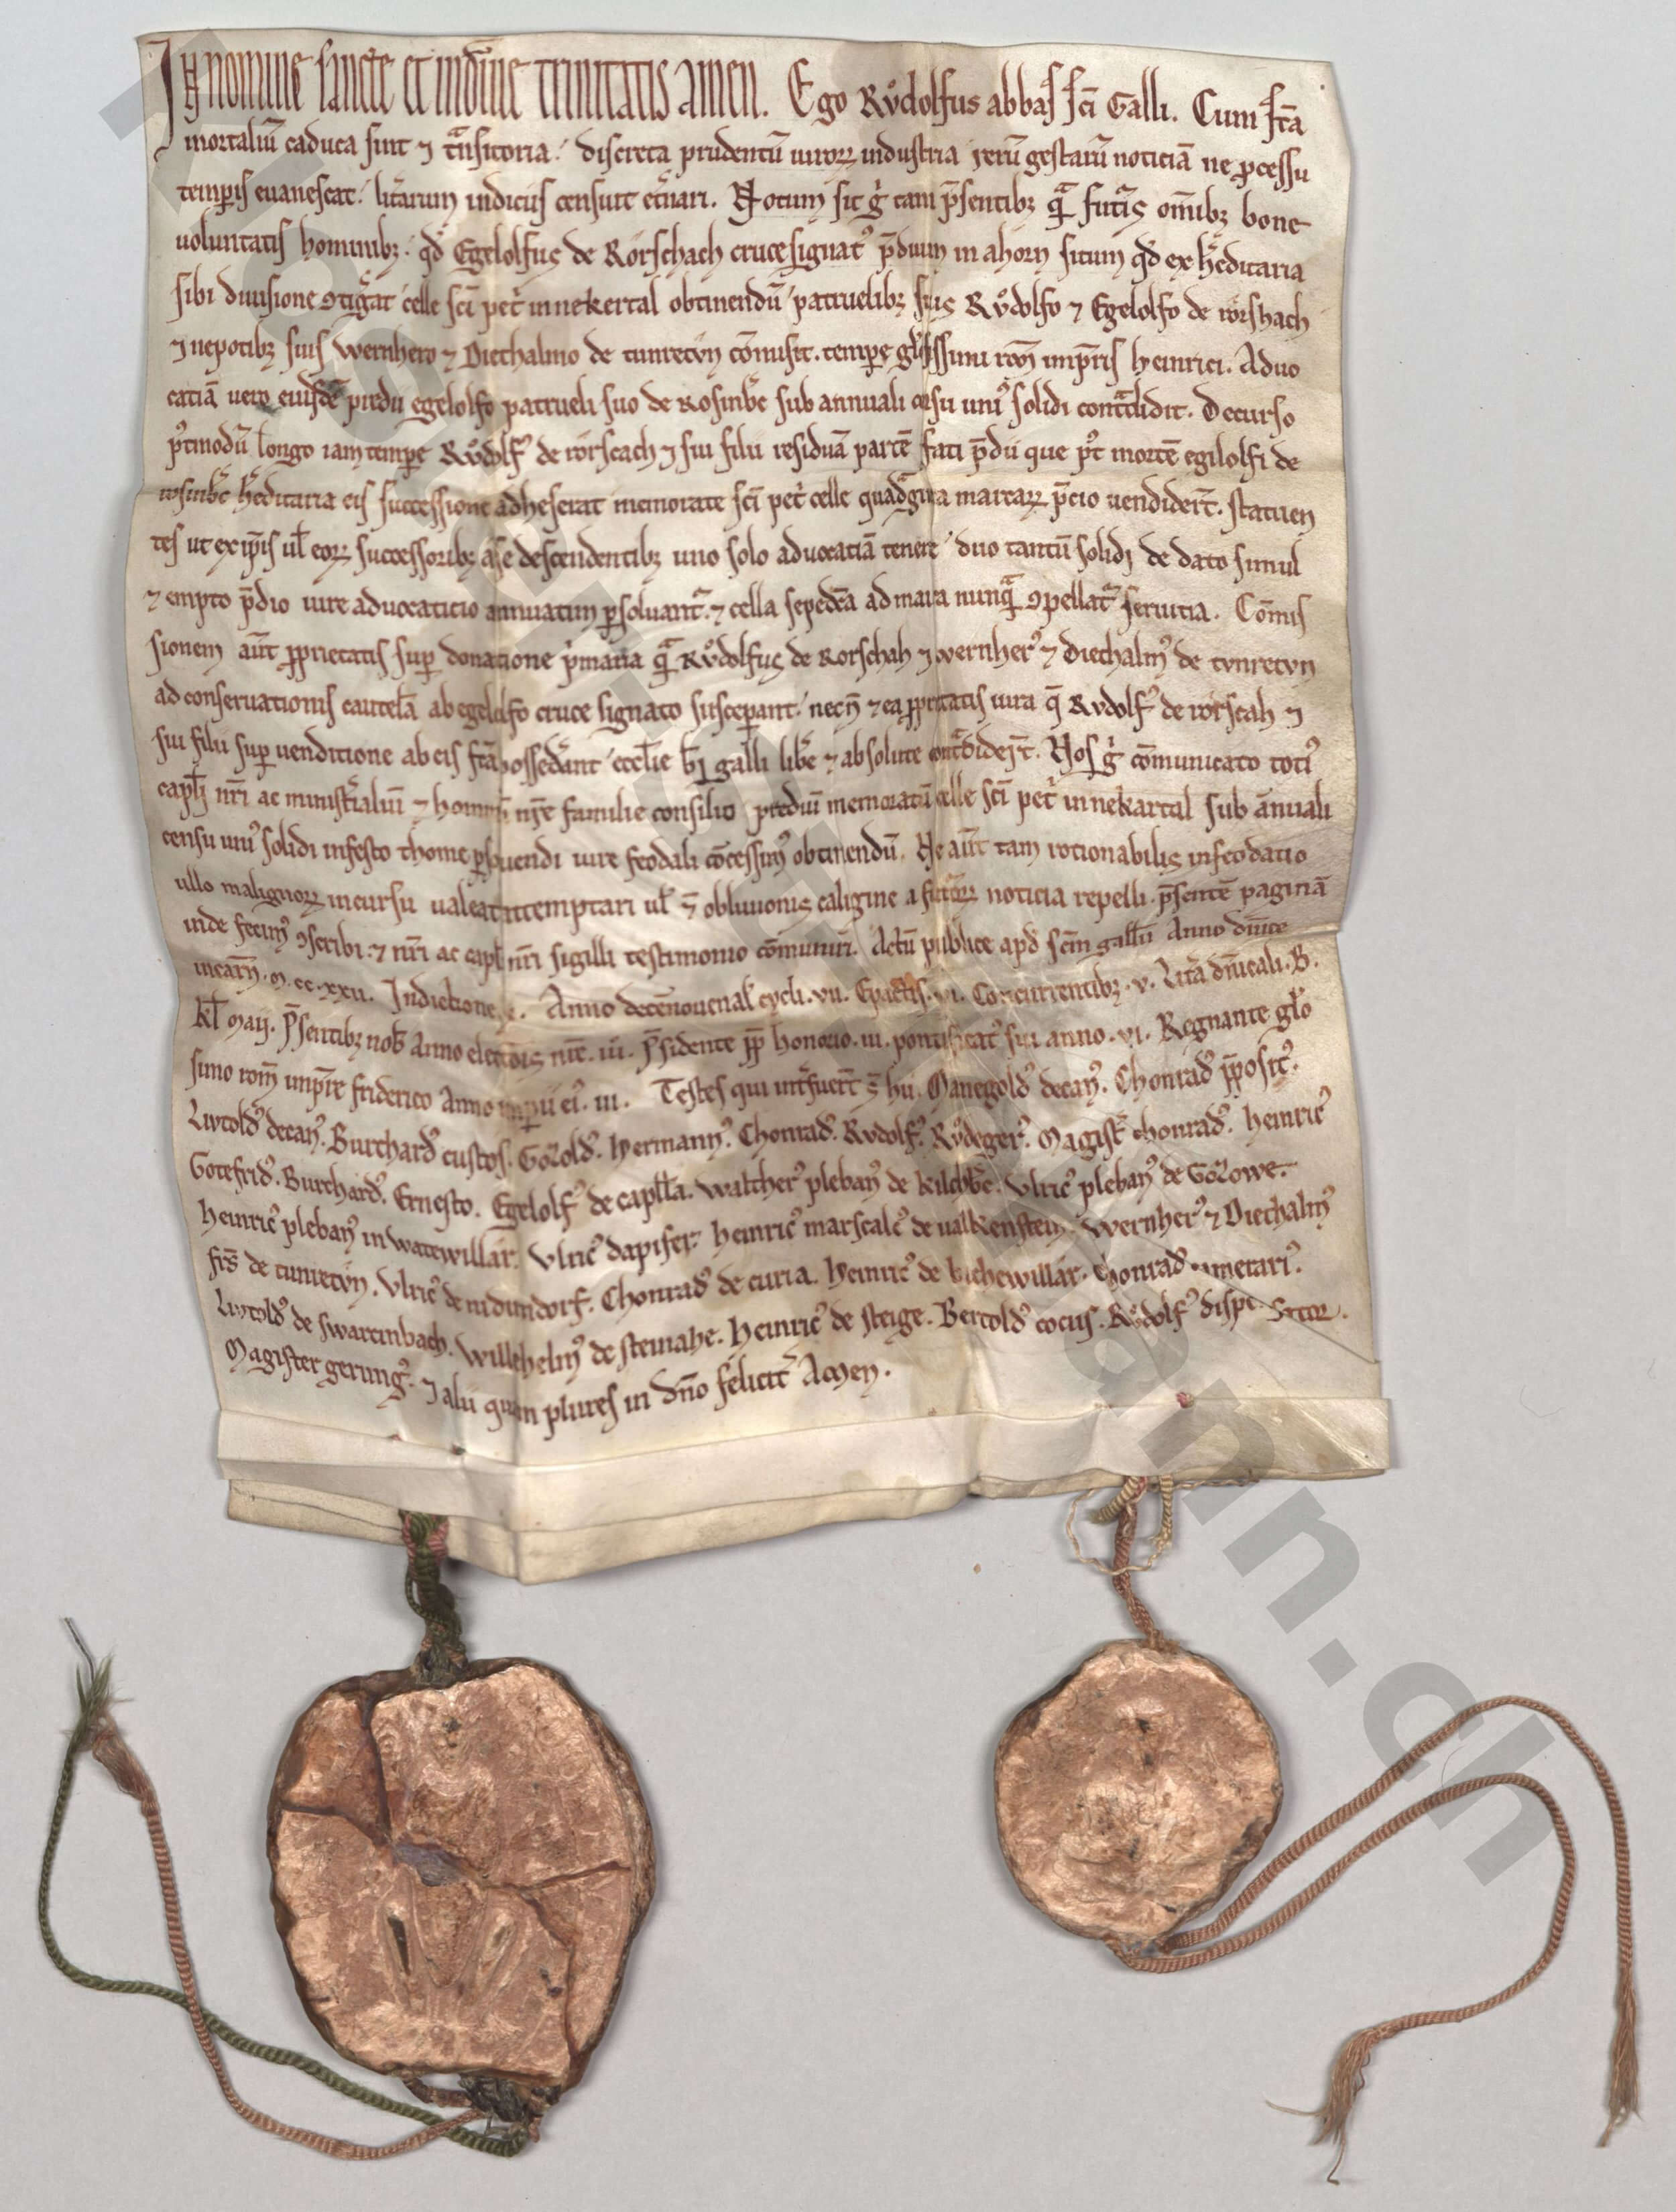 In nomine sancte et indiuie trinitatis amen. Ego Růdolfus abbas sci Galli. Cum fca
mortaliū caduca sint ⁊ tnsitoria. discreta prudentū uiroꝝ industria rerū gestarū noticiā ne ꝓcessu
temꝑis euanescat. litarum indiciis censuit etnari. Notum sit g tam psentibꝫ qͣ futis omībꝫ bone
uoluntatis hominibꝫ. qd Egelolfus de Rorschach cruce signatꝰ pdium in ahorn situm qd ex heditaria
sibi diuisione ꝯtigat celle sci pet in nekertal obtinendū patruelibꝫ suis Růdolfo ⁊ Egelolfo de rorshach
⁊ nepotibꝫ suis Wernhero ⁊ Diethalmo de tunretvn cōmisit. tempe glssimi rom impris heinrici. Aduo
catiā uero eiusdē predii egelolfo patrueli suo de Rosinbc sub annuali cesu uniꝰ solidi contdidit. Decurso
pꝰtmodū longo iam tempe Růdolfꝰ de rorscach ⁊ sui filii residuā partē fati pdii que pꝰt mortē egilolfi de
rosinbc heditaria eis successione adheserat memorate sci pet celle quadginta marcaꝝ pcio uendidert. statuen
tes ut ex ipsis ul eoꝝ successoribꝫ a se descendentibꝫ uno solo aduocatiā tenere duo tantū solidi de dato simul
⁊ empto pdio iure aduocaticio annuatim ꝑsoluant. ⁊ cella sepedca ad maiora nunqͣ ꝯpellat seruitia. Cōmis
sionem aūt ꝓprietatis suꝑ donatione pmaria qͣ Růdolfus de Rorschah ⁊ wernherꝰ ⁊ Diethalmꝰ de tvnretvn
ad conseruationis cautelā ab egelolfo cruce signato susceꝑant. necn ⁊ ea ꝓprietatis iura q Rvdolfꝰ de rorscah ⁊
sui filii suꝑ uenditione ab eis fca possedant ecclie bi galli libe ⁊ absolute contdidert. Nos g cōmunicato totiꝰ
capli nri ac ministialiū ⁊ hominū nre familie consilio prediū memoratū celle sci pet in nekartal sub annuali
censu uniꝰ solidi in festo thome ꝑsoluendi iure feodali cōcessimꝰ obtinendū. Ne aūt tam rotionabilis infeodatio
ullo malignoꝝ incursu ualeat attemptari ul oblivionis caligine a futoꝝ noticia repelli. psentē paginā
inde fecimꝰ ꝯscribi. ⁊ nri ac capli nri sigilli testimonio cōmuniri. Actū publice apd scm gallū Anno dnice
incarn. m. cc. xxii. Indictione x. Anno decēnouenal cycli. vii. Epactis. vi. Concurrentibꝫ. v. Litā dnicali. B.
kl maii. Psentibꝫ nob Anno electōis nre. iii. Psidente pp honorio. iii. pontificatꝰ sui anno. vi. Regnante glo
simo rom impre friderico Anno imperii eiꝰ. iii. Testes qui intfuert s hii. Manegoldꝰ decanꝰ. Chonradꝰ ꝓpositꝰ.
Livtoldꝰ decanꝰ. Burchardꝰ custos. Gozoldꝰ. hermannꝰ. Chonradꝰ. Rvdolfꝰ. Růdegerꝰ. Magist chonradꝰ. heinricꝰ
Gotefridꝰ. Burchardꝰ. Ernesto. Egelolfꝰ de caplla. waltherꝰ plebanꝰ de kilchbc. Vlricꝰ plebanꝰ de Gozowe.
heinricꝰ plebanꝰ in watewillar. Vlricꝰ dapifer. heinricꝰ marscalcꝰ de ualkenstein. wernherꝰ ⁊ Diethalmꝰ
frs de tunretvn. Vlricꝰ de nidirndorf. Chonradꝰ de curia. heinricꝰ de bichewillar. Chonradꝰ camerariꝰ.
Livtoldꝰ de swarcinbach. Willehelmꝰ de steinahe. heinricꝰ de steige. Bertoldꝰ cocus. Růdolfꝰ dispensator.
Magister gerungꝰ. ⁊ alii quam plures in dno felicit Amen.